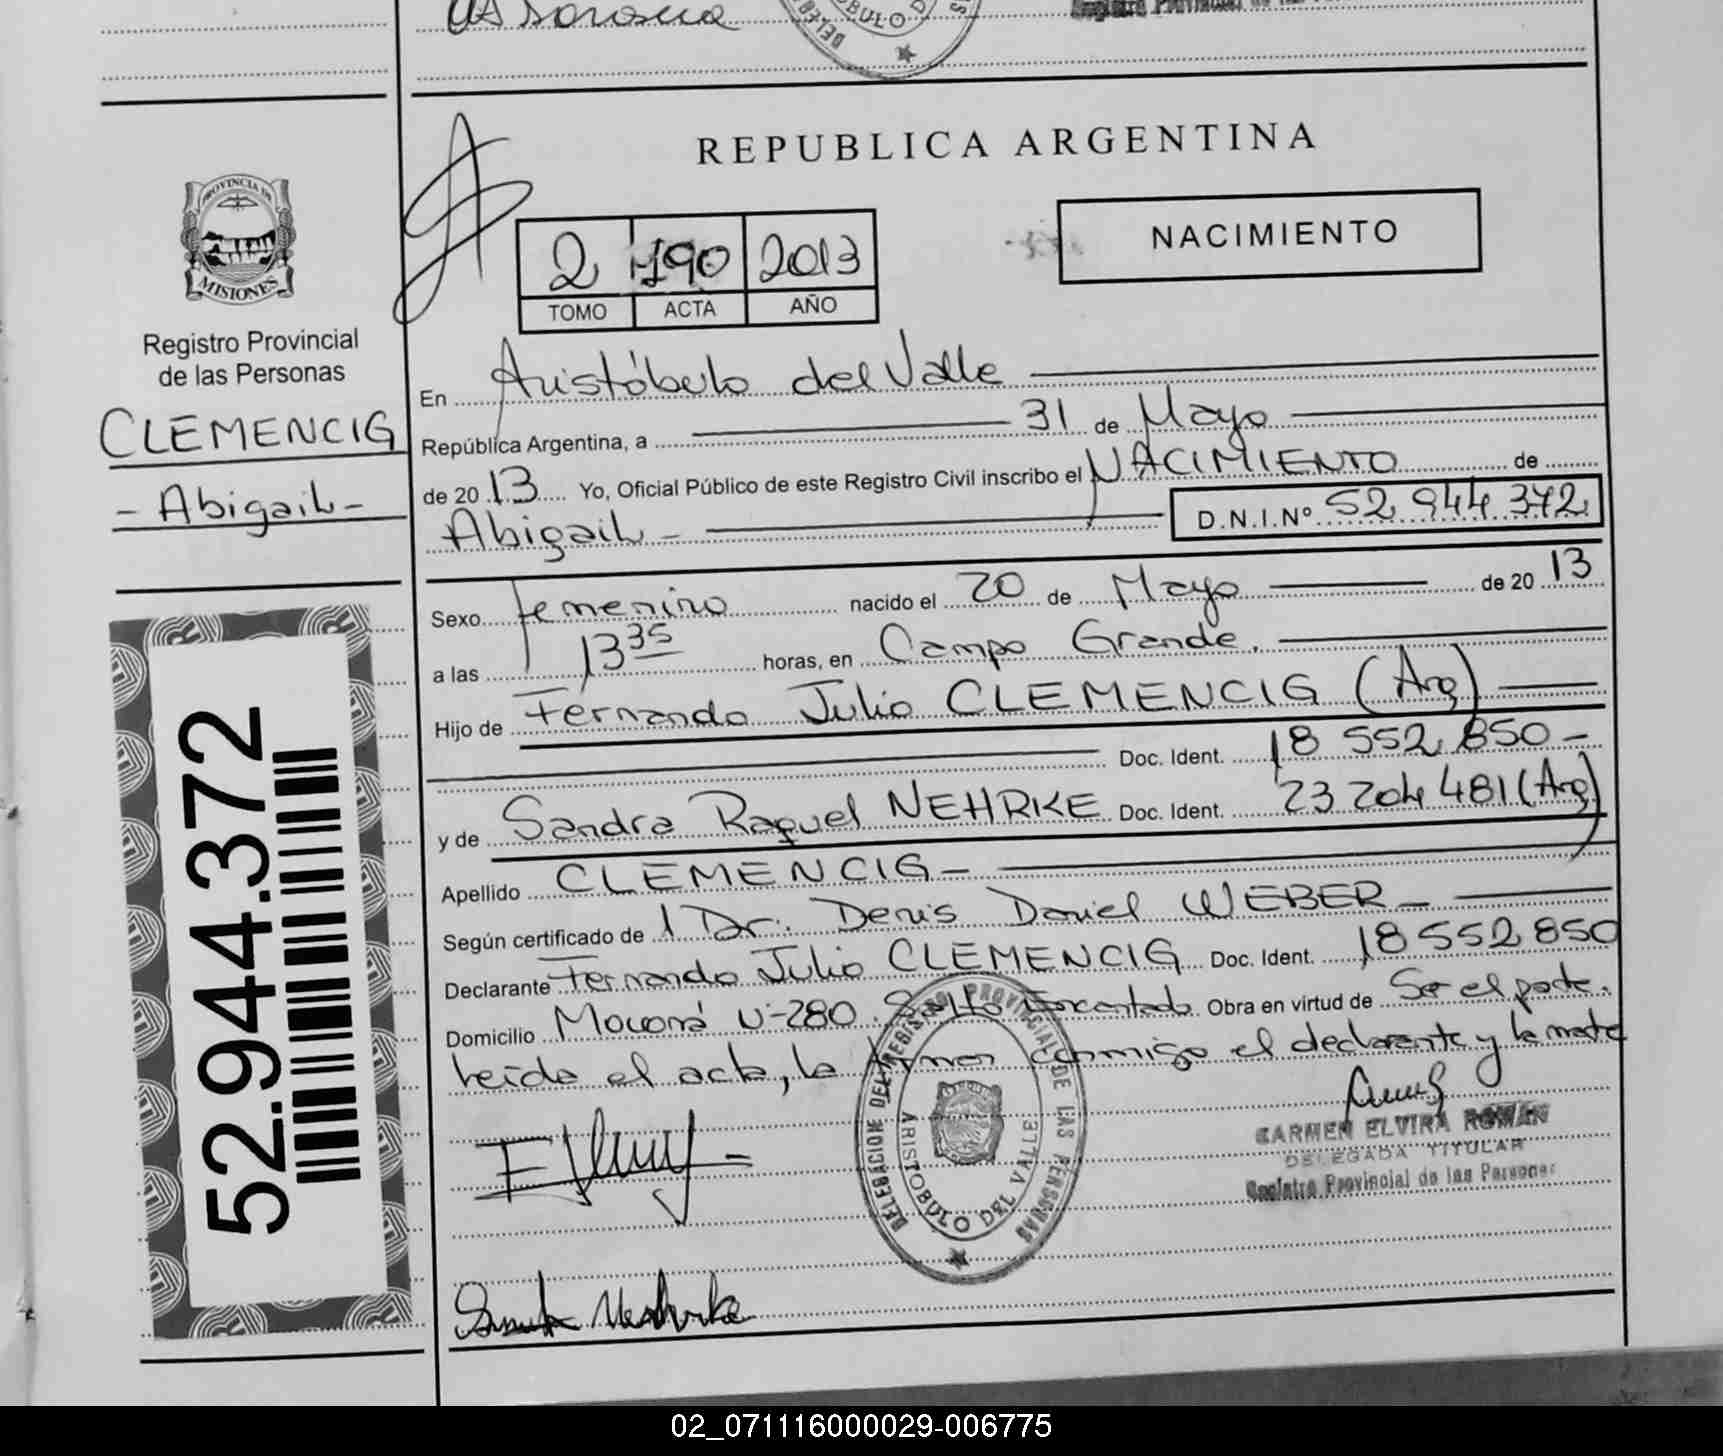 REPUBLICA ARGENTINA
NACIMIENTO
2 190 2013
TOMO ACTA AÑO
PROVINCIA DE
MISIONES
Registro Provincial
de las Personas
CLEMENCIG
- Abigail -
52.944.372
En Aristóbulo del Valle
República Argentina, a 31 de Mayo
de 2013 Yo, Oficial Público de este Registro Civil inscribo el NACIMIENTO de
Abigail - D.N.I.Nº 52 944 372
Sexo femenino nacido el 20 de Mayo de 2013
a las 13 35 horas, en Campo Grande.
Hijo de Fernando Julio CLEMENCIG (Arg)
Doc. Ident. 18 552 850 -
y de Sandra Raquel NEHRKE Doc. Ident. 23 204 481 (Arg)
Apellido CLEMENCIG -
Según certificado de l Dr. Denis Daniel WEBER -
Declarante Fernando Julio CLEMENCIG Doc. Ident. 18 552 850
Domicilio Moconá U-280. Salto Encantado Obra en virtud de Ser el padre.
Leída el acta, la firman conmigo el declarante y la madre
CARMEN ELVIRA ROMAN
DELEGADA TITULAR
Registro Provincial de las Personas
DELEGACION DEL REGISTRO PROVINCIAL DE LAS PERSONAS
ARISTOBULO DEL VALLE
Nehrke
02_071116000029-006775